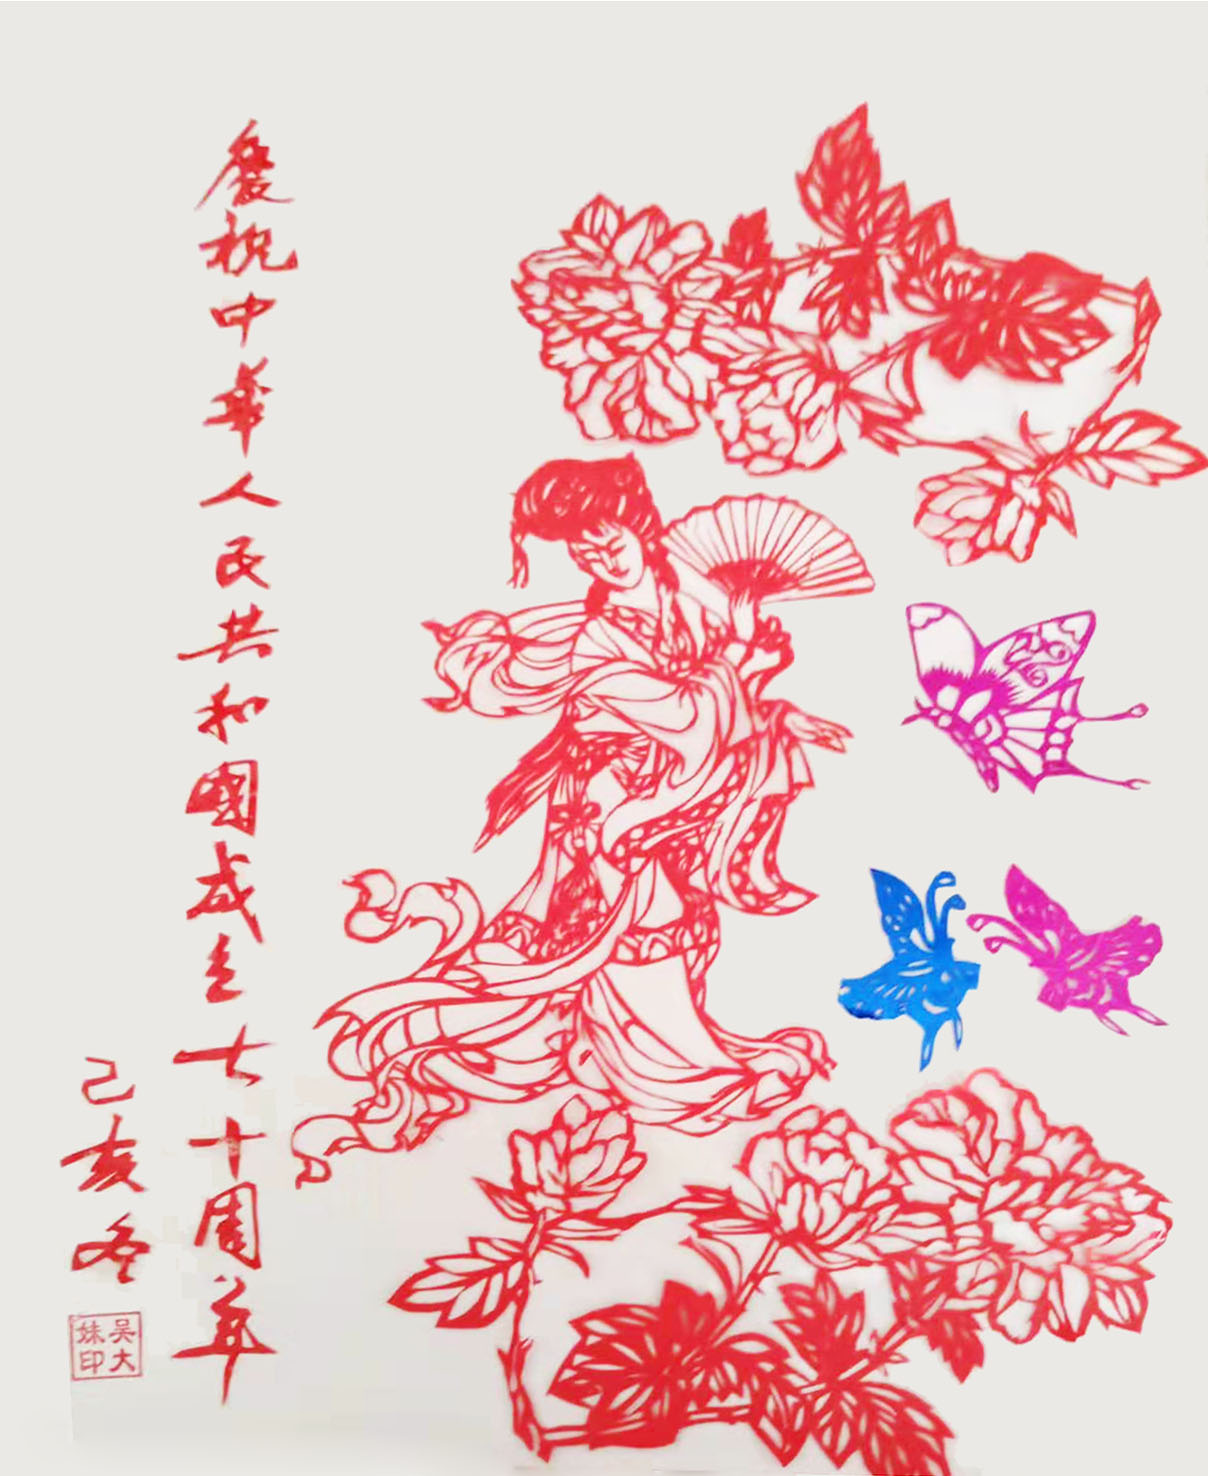 慶祝中華人民共和國成立七十周年
己亥冬
吴大妹印